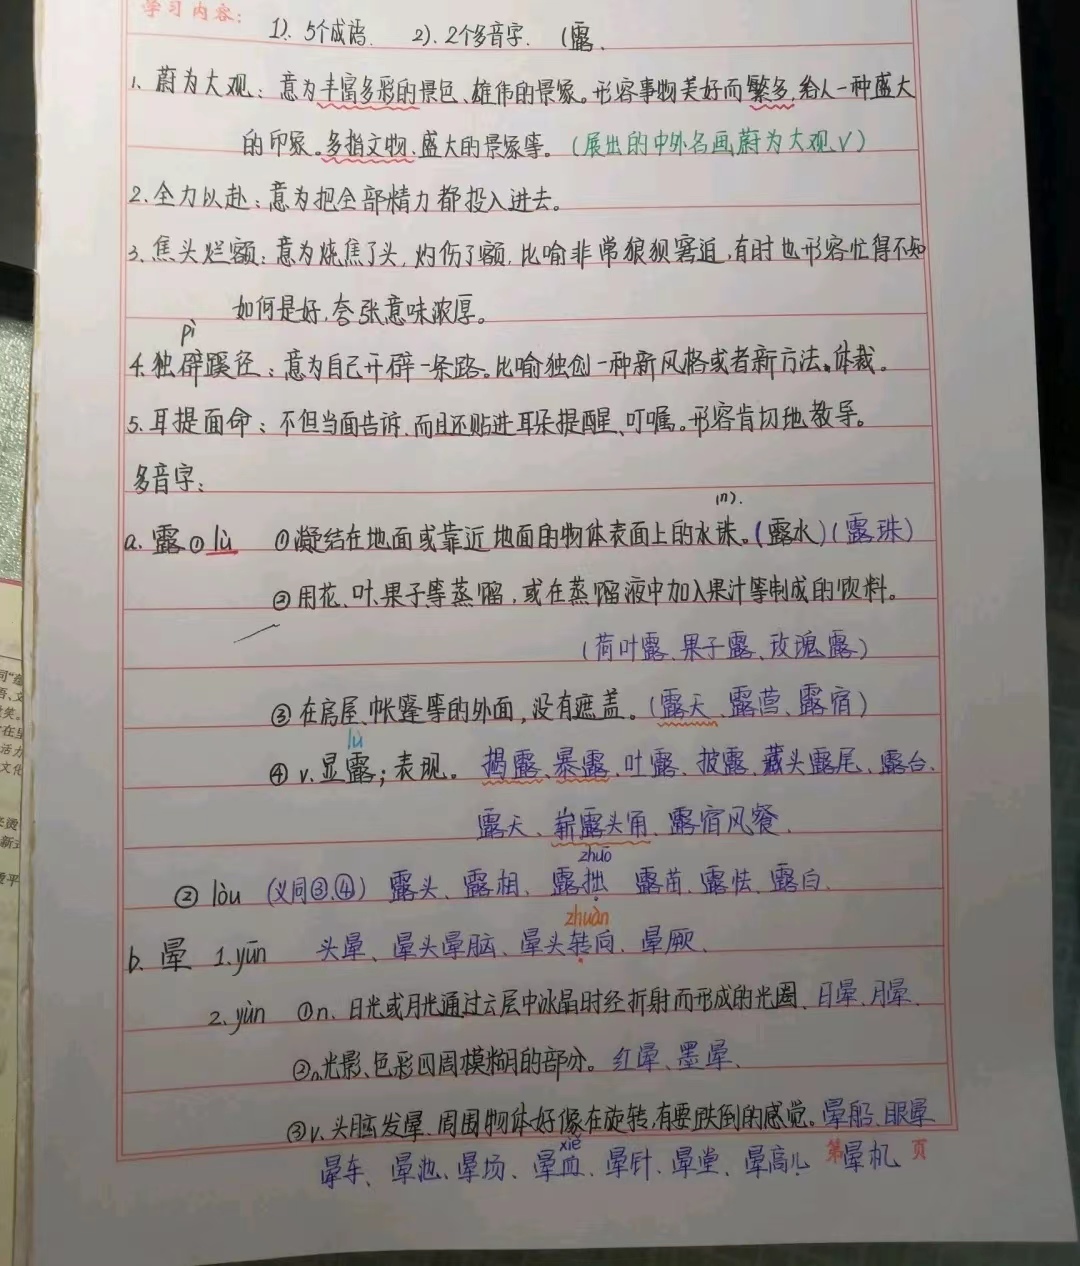 学习内容：
1). 5个成语. 2). 2个多音字. (露.
1. 蔚为大观：意为丰富多彩的景色、雄伟的景象。形容事物美好而繁多,给人一种盛大
的印象。多指文物、盛大的景象等。(展出的中外名画蔚为大观√)
2. 全力以赴：意为把全部精力都投入进去。
3. 焦头烂额：意为烧焦了头,灼伤了额,比喻非常狼狈窘迫,有时也形容忙得不知
如何是好,夸张意味浓厚。
pì
4. 独辟蹊径：意为自己开辟一条路。比喻独创一种新风格或者新方法。体裁。
5. 耳提面命：不但当面告诉、而且还贴进耳朵提醒、叮嘱。形容肯切地教导。
多音字：
(n).
a. 露①lù ①凝结在地面或靠近地面的物体表面上的水珠。(露水)(露珠)
②用花、叶、果子等蒸馏，或在蒸馏液中加入果汁等制成的饮料。
(荷叶露、果子露、玫瑰露)
③在房屋、帐篷等的外面,没有遮盖。(露天、露营、露宿)
lù
④v.显露；表现。揭露、暴露、吐露、披露、藏头露尾、露台、
露天、崭露头角、露宿风餐、
zhuō
②lòu (义同③.④) 露头、露相、露拙 露苗、露怯、露白、
zhuàn
b. 晕 1.yūn 头晕、晕头晕脑、晕头转向、晕厥、
2.yùn ①n、日光或月光通过云层中冰晶时经折射而形成的光圈、日晕、月晕、
②n光影、色彩四周模糊的部分。红晕、墨晕、
③v.头脑发晕、周围物体好像在旋转,有要跌倒的感觉。晕船、眼晕
xiě
晕车、晕池、晕场、晕血、晕针、晕堂、晕高儿 晕机
第 页